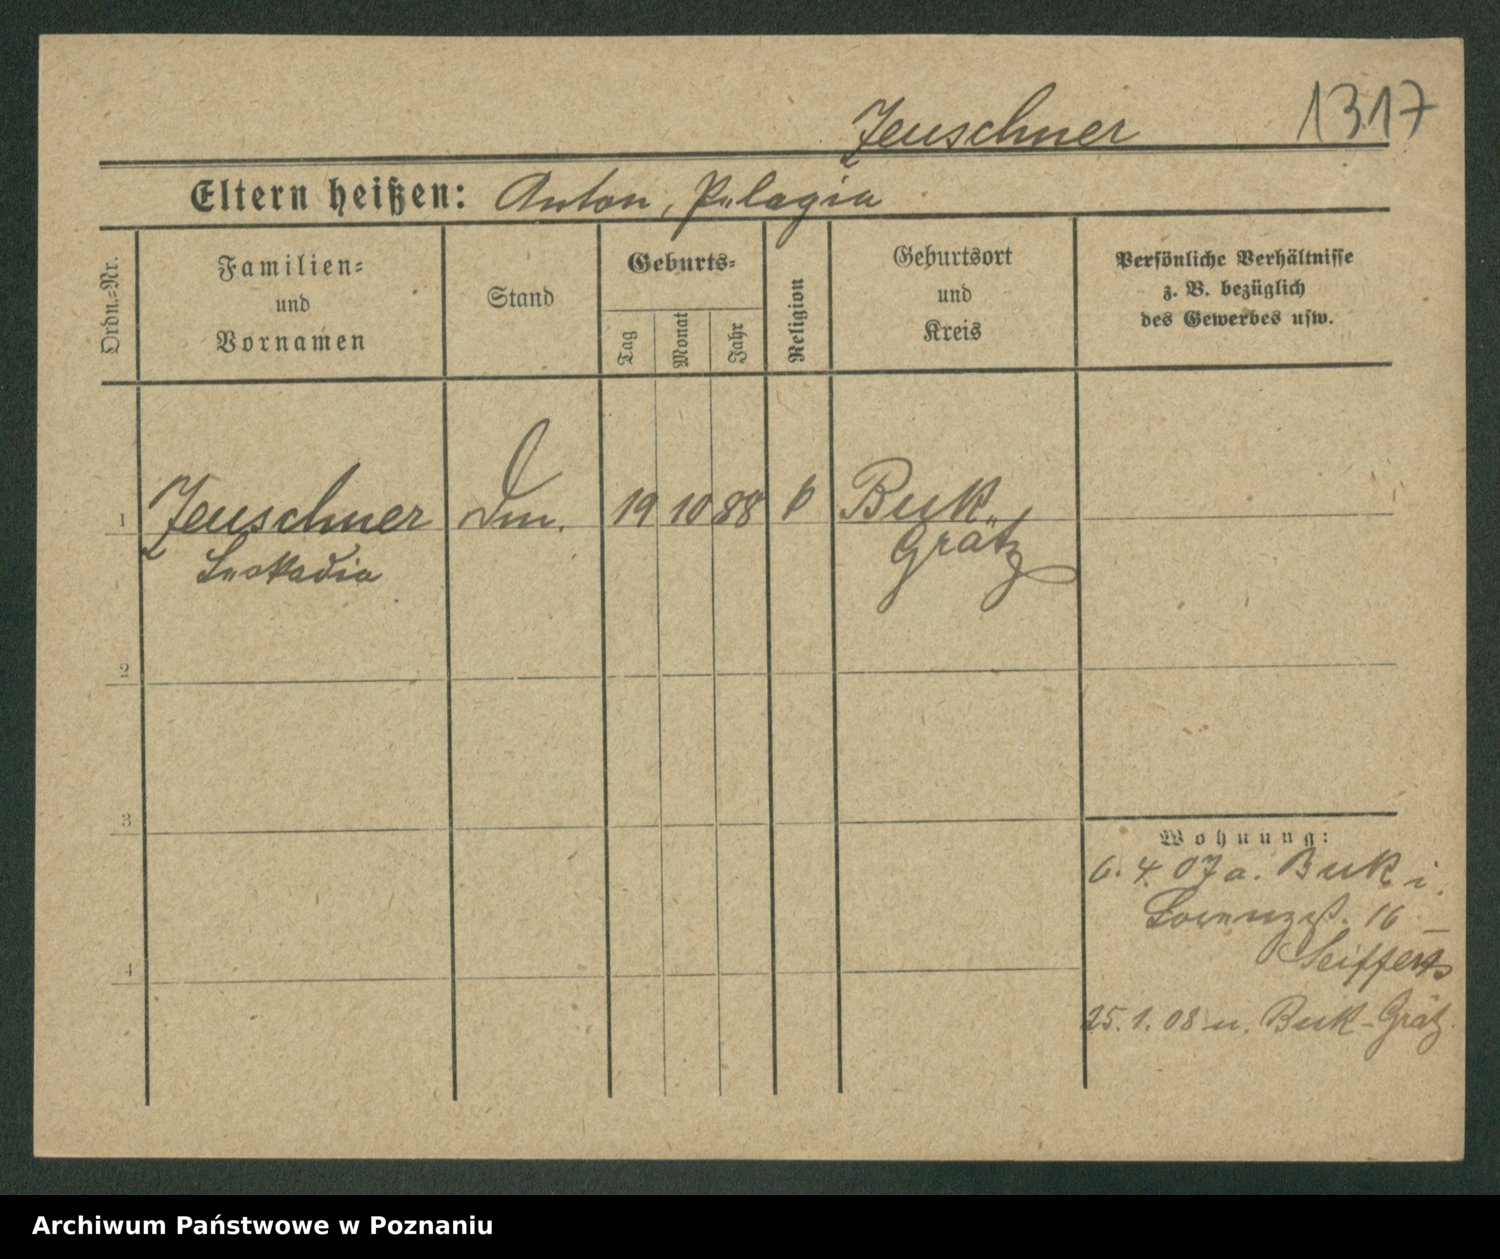 Jeuschner 1317
Eltern heißen: Anton, Pelagia
Ordn.-Nr.
Familien-
und
Vornamen
Stand
Geburts-
Tag
Monat
Jahr
Religion
Geburtsort
und
Kreis
Persönliche Verhältnisse
z. B. bezüglich
des Gewerbes usw.
1 Jeuschner 19 10 88 k Buk
Leokadia Grätz
2
3
4
Wohnung:
6. 4. 07 a. Buk i.
Lorenzstr. 16
Seiffert
25. 1. 08 n. Buk-Grätz
Archiwum Państwowe w Poznaniu